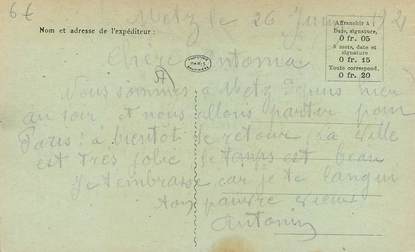 6€
Metz le 26
Nom et adresse de l'expéditeur :
Affranchir à
Date, signature,
0 fr. 05
5 mots, date et
signature
0 fr. 15
Toute correspond.
0 fr. 20
Chere Antonia
Nous sommes à Metz depuis hier
au soir et nous allons partir pour
Paris : à bientôt le retour la ville
est très jolie le temps est beau
Je t'embrasse car je te langui
ton pauvre vieux
Antonin